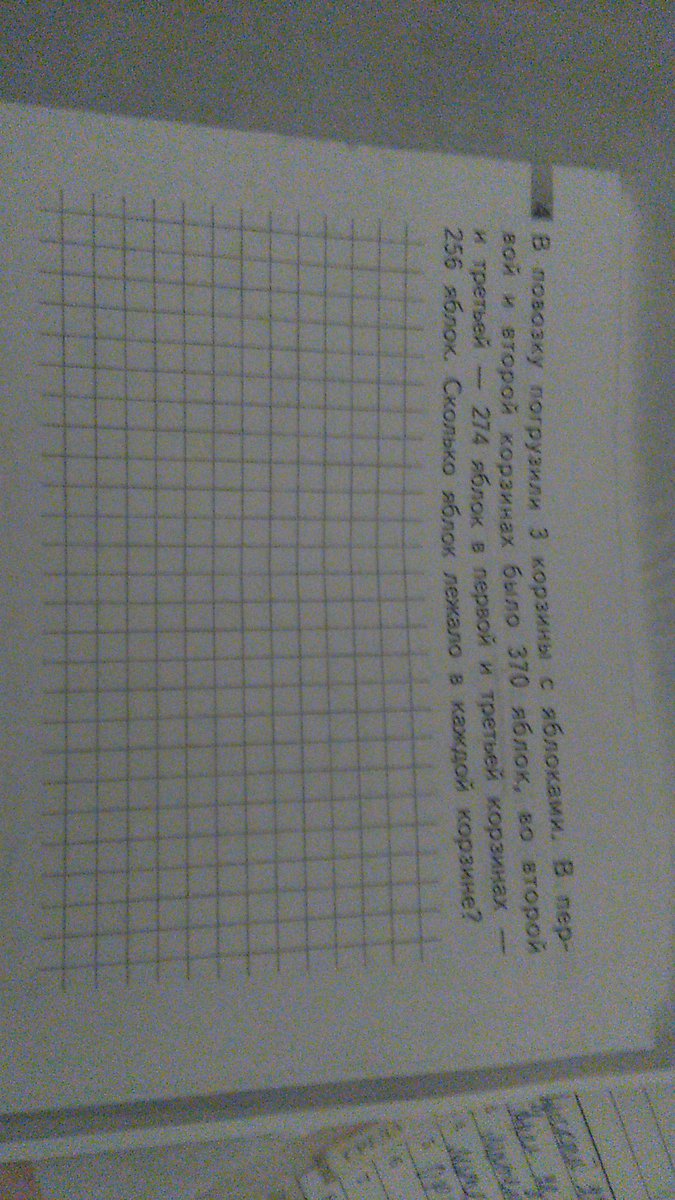 4 В повозку погрузили 3 корзины с яблоками. В пер-
вой и второй корзинах было 370 яблок, во второй
и третьей — 274 яблок в первой и третьей корзинах —
256 яблок. Сколько яблок лежало в каждой корзине?